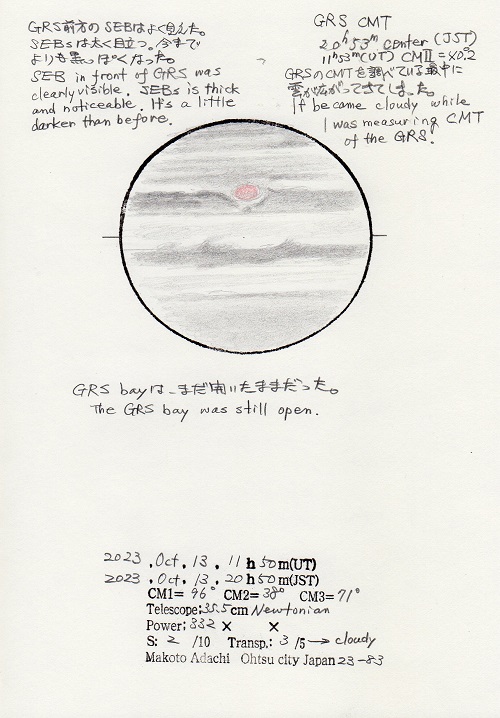 GRS前方のSEBはよく見えた。
SEBsは太く目立つ。今まで
よりも黒っぽくなった。
SEB in front of GRS was
clearly visible. SEBs is thick
and noticeable. It's a little
darker than before.
GRS CMT
20h53m center (JST)
11h53m(UT) CMⅡ=40.°2
GRSのCMTを調べている最中に
雲が広がってきてしまった。
It became cloudy while
I was measuring CMT
of the GRS!
GRS bayは、まだ開いたままだった。
The GRS bay was still open.
2023 .Oct. 13 . 11 h 50 m(UT)
2023 .Oct. 13 . 20 h 50 m(JST)
CM1= 96° CM2= 38° CM3= 71°
Telescope:35.5cm Newtonian
Power; 332 × ×
S: 2 /10 Transp.: 3 /5 → cloudy
Makoto Adachi Ohtsu city Japan 23-83